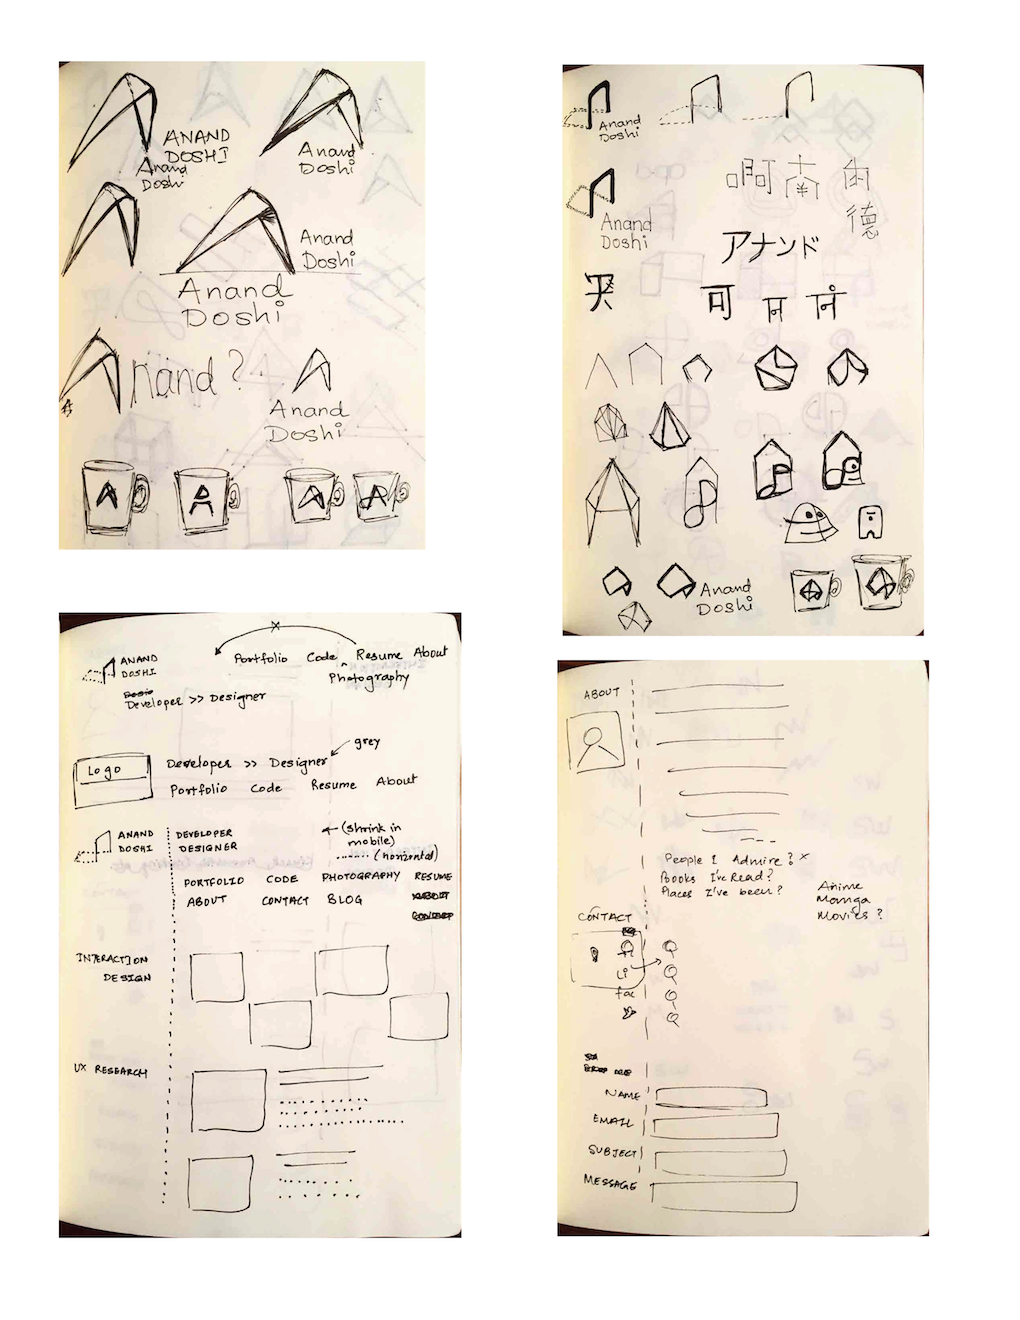 ANAND
DOSHI
Anand
Doshi
Anand
Doshi
Anand
Doshi
Anand
Doshi
Anand ?
Anand
Doshi
Anand
Doshi
Anand
Doshi
啊
德
アナンド
可
Anand
Doshi
ANAND
DOSHI
Portfolio Code Resume About
Photography
Developer >> Designer
grey
Logo
Developer >> Designer
Portfolio Code Resume About
ANAND
DOSHI
DEVELOPER
DESIGNER
(shrink in
mobile)
(horizontal)
PORTFOLIO CODE PHOTOGRAPHY RESUME
ABOUT CONTACT BLOG
INTERACTION
DESIGN
UX RESEARCH
ABOUT
People I Admire ? x
Books I've Read?
Places I've been?
Anime
Manga
Movies ?
CONTACT
Li
fac
NAME
EMAIL
SUBJECT
MESSAGE